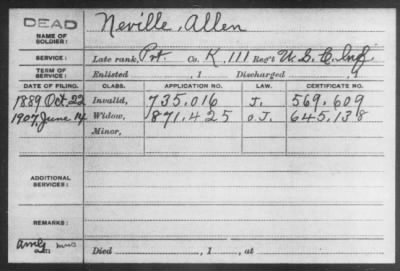 DEAD
NAME OF SOLDIER: Neville, Allen
SERVICE: Late rank, Prt. Co. K, 111 Reg't U.S.C. Inf.
TERM OF SERVICE: Enlisted , 1 Discharged , 1
DATE OF FILING. CLASS. APPLICATION NO. LAW. CERTIFICATE NO.
1889 Oct. 22 Invalid, 735.016 J. 569.609
1907, June 14 Widow, 871.425 O.J. 645.138
Minor,
ADDITIONAL SERVICES:
REMARKS:
Died , 1 , at